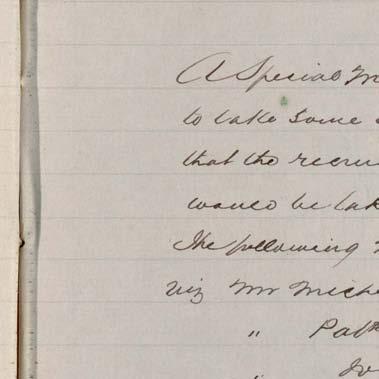 A Special M
to take some
that the recru
would be tak
The following
viz Mr Miche
" Pat
"